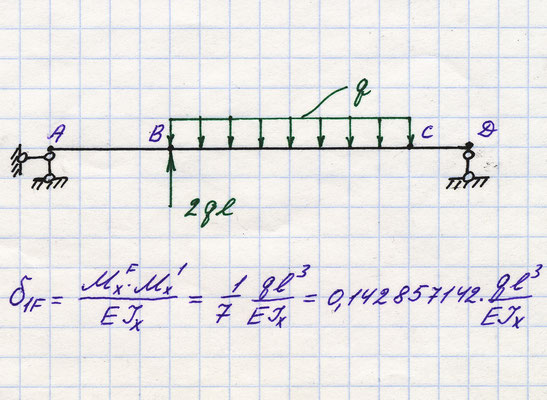 q
A B C D
2ql
δ1F = MxF · Mx1 / EJx = 1/7 ql³/EJx = 0,142857142 · ql³/EJx